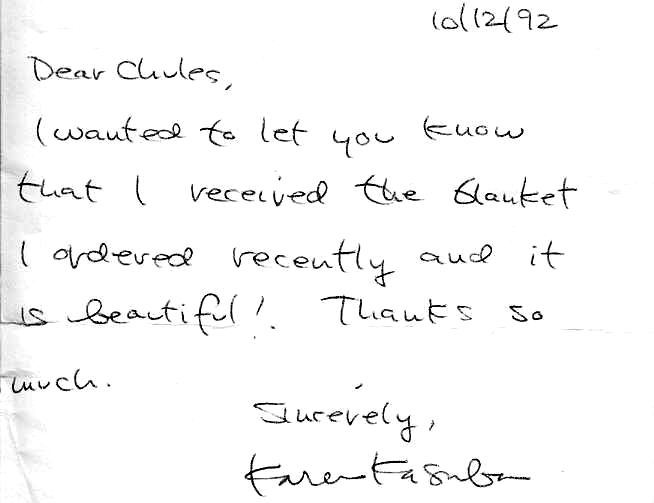 10/12/92
Dear Chules,
I wanted to let you know
that I received the blanket
I ordered recently and it
is beautiful! Thanks so
much.
Sincerely,
Karen